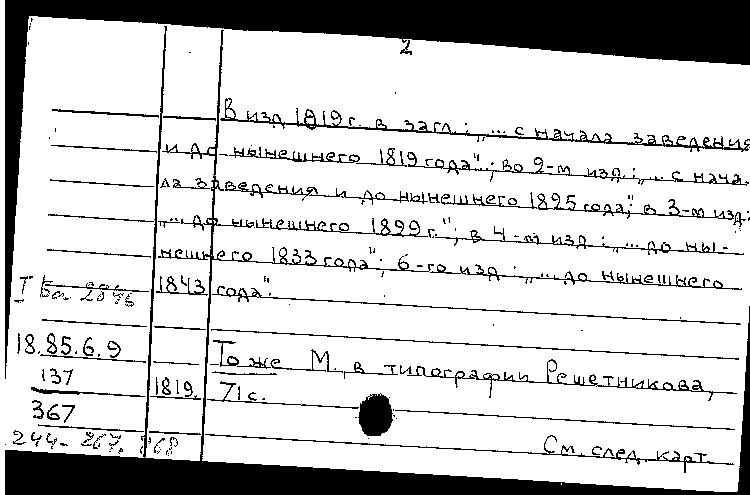 2
В изд 1819 г. в загл.: „... с начала заведения
и до нынешнего 1819 года"; во 2-м изд.: „... с нача-
ла заведения и до нынешнего 1825 года", в 3-м изд.:
„... до нынешнего 1829 г."; в 4-м изд.: „... до ны-
нешнего 1833 года"; 6-го изд.: „... до нынешнего
1843 года".
18.85.6.9
137
367
244- 267. 868
То же М., в типографии Решетникова,
1819. 71 с.
См. след. карт.